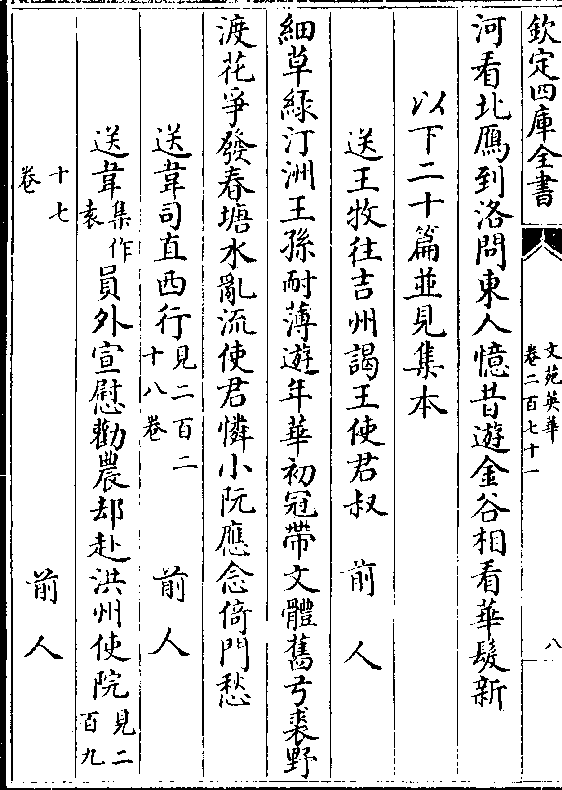 欽定四庫全書
文苑英華
卷二百七十一
八
河看北鴈到洛問東人憶昔遊金谷相看華髮新
以下二十篇並見集本
送王牧往吉州謁王使君叔 前人
細草綠汀洲王孫耐薄遊年華初冠帶文體舊弓裘野
渡花爭發春塘水亂流使君憐小阮應念倚門愁
送韋司直西行見二百二十八卷 前人
送韋集作袁員外宣慰勸農却赴洪州使院見二百九
十七卷 前人